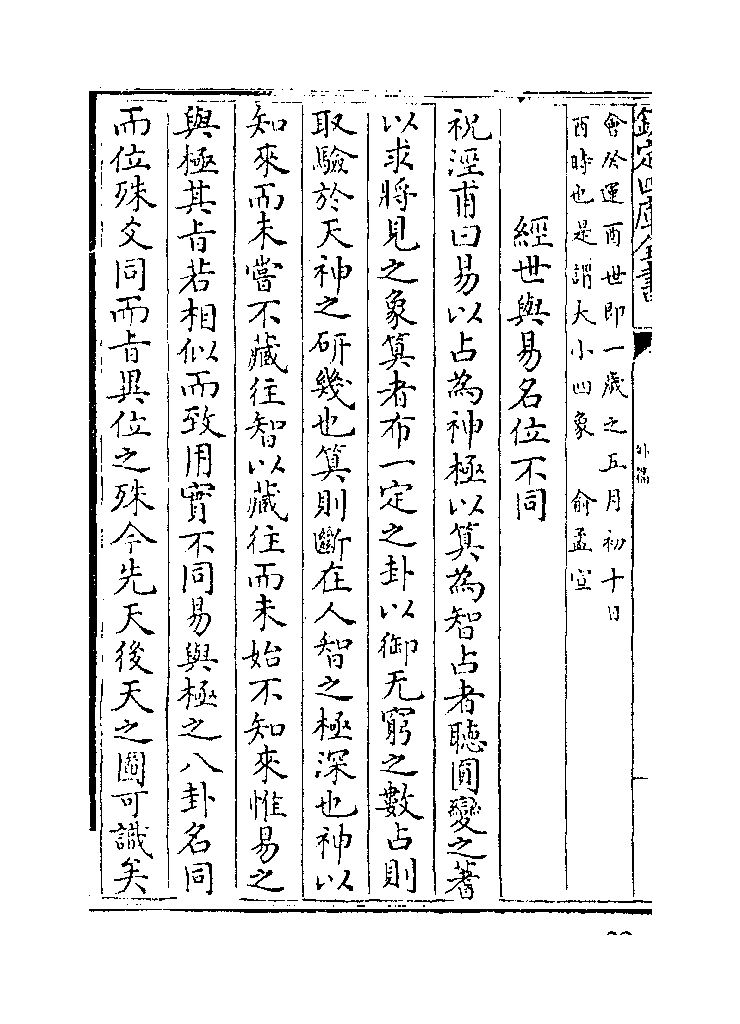 欽定四庫全書
外篇
會於運酉世即一歲之五月初十日
酉時也是謂大小四象　俞孟宣
經世與易名位不同
祝涇甫曰易以占為神極以算為智占者聽圓變之蓍
以求將見之象算者布一定之卦以御无窮之數占則
取驗於天神之研幾也算則斷在人智之極深也神以
知來而未嘗不藏往智以藏往而未始不知來惟易之
與極其旨若相似而致用實不同易與極之八卦名同
而位殊文同而旨異位之殊今先天後天之圖可識矣